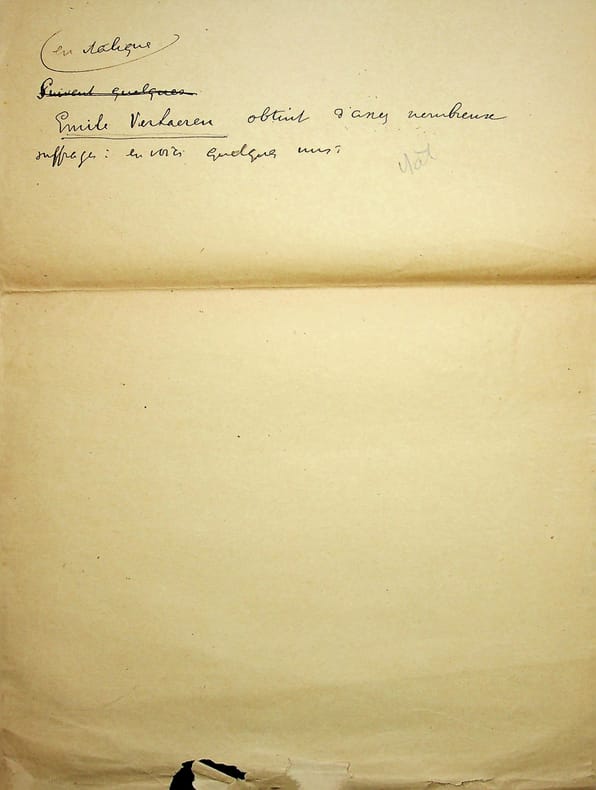 (en italique)
Suivent quelques
Emile Verhaeren obtint d'assez nombreux
suffrages : en voici quelques uns :